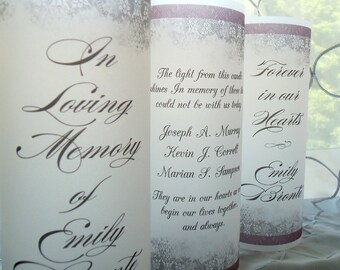 In
Loving
Memory
of
Emily
Bronte
The light from this candle
shines In memory of those
could not be with us today
Joseph A. Murray
Kevin J. Correll
Marian S. Sampson
They are in our hearts as
begin our lives together
and always.
Forever
in our
Hearts
Emily
Bronte